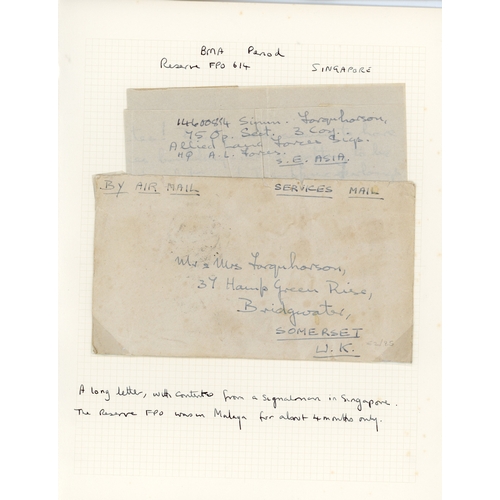 BMA Period
Reserve FPO 614
SINGAPORE
14600814 Sigmn. Farquharson,
75 Op. Sect. 3 Coy.,
Allied Land Forces Sigs.
HQ A.L. Forces.
S.E. ASIA.
BY AIR MAIL
SERVICES MAIL
Mr & Mrs Farquharson,
39 Hamp Green Rise,
Bridgwater,
SOMERSET
U.K.
A long letter, with contents from a signalman in Singapore.
The Reserve FPO was in Malaya for about 4 months only.